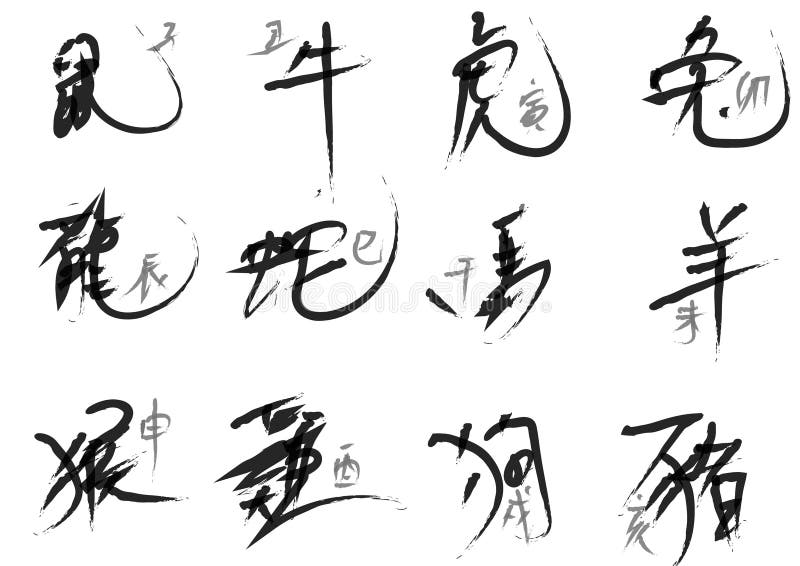 鼠 子 丑 牛 虎 寅 兔 卯
龍 辰 蛇 巳 午 馬 未 羊
猴 申 雞 酉 狗 戌 亥 豬